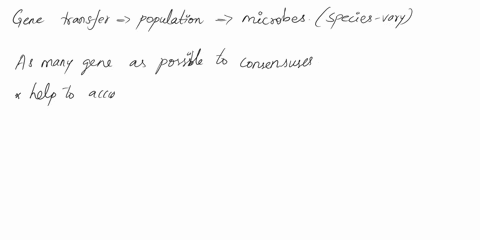 Gene transfer => population -> microbes. (species-vary)
As many gene as possible to consensuses
* help to acco